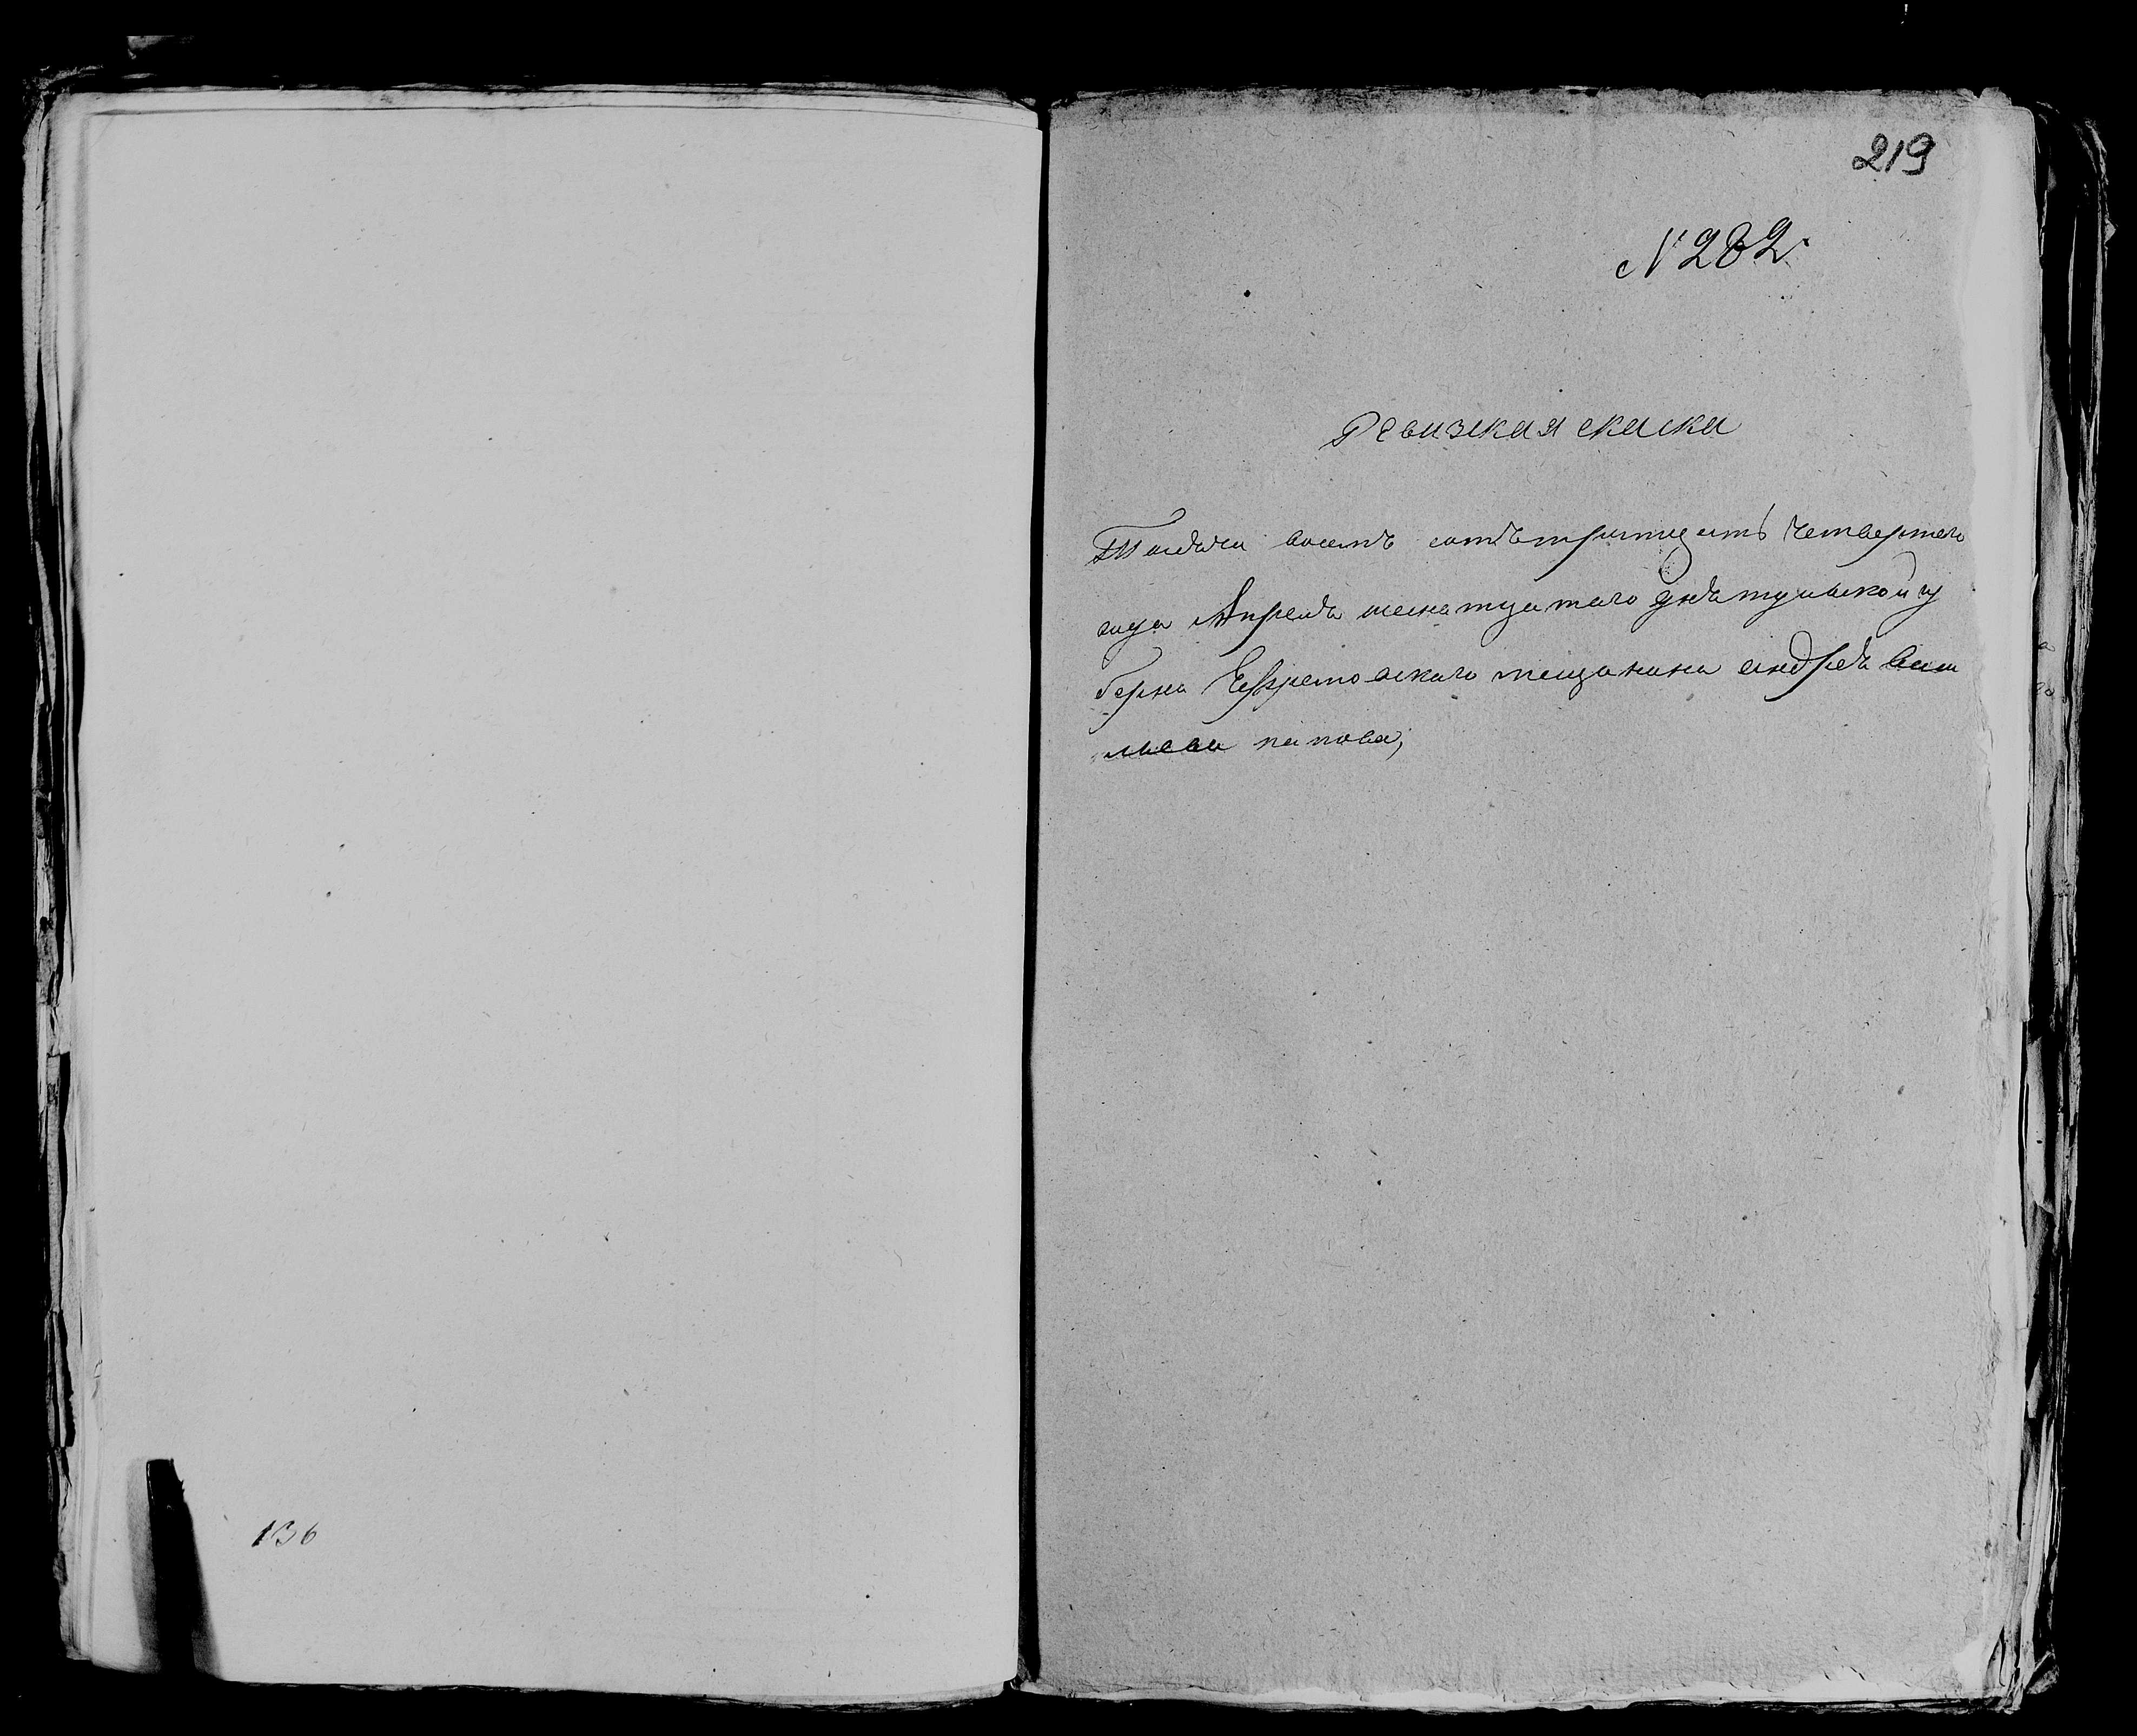 136
219
N 282
Ревизская скаска
Тысяча восемъ сотъ тритцать четвертаго
года Апреля шеснатцатаго дня тульской гу
берни Ефремовскаго мещанина андрея васи
льева папова;